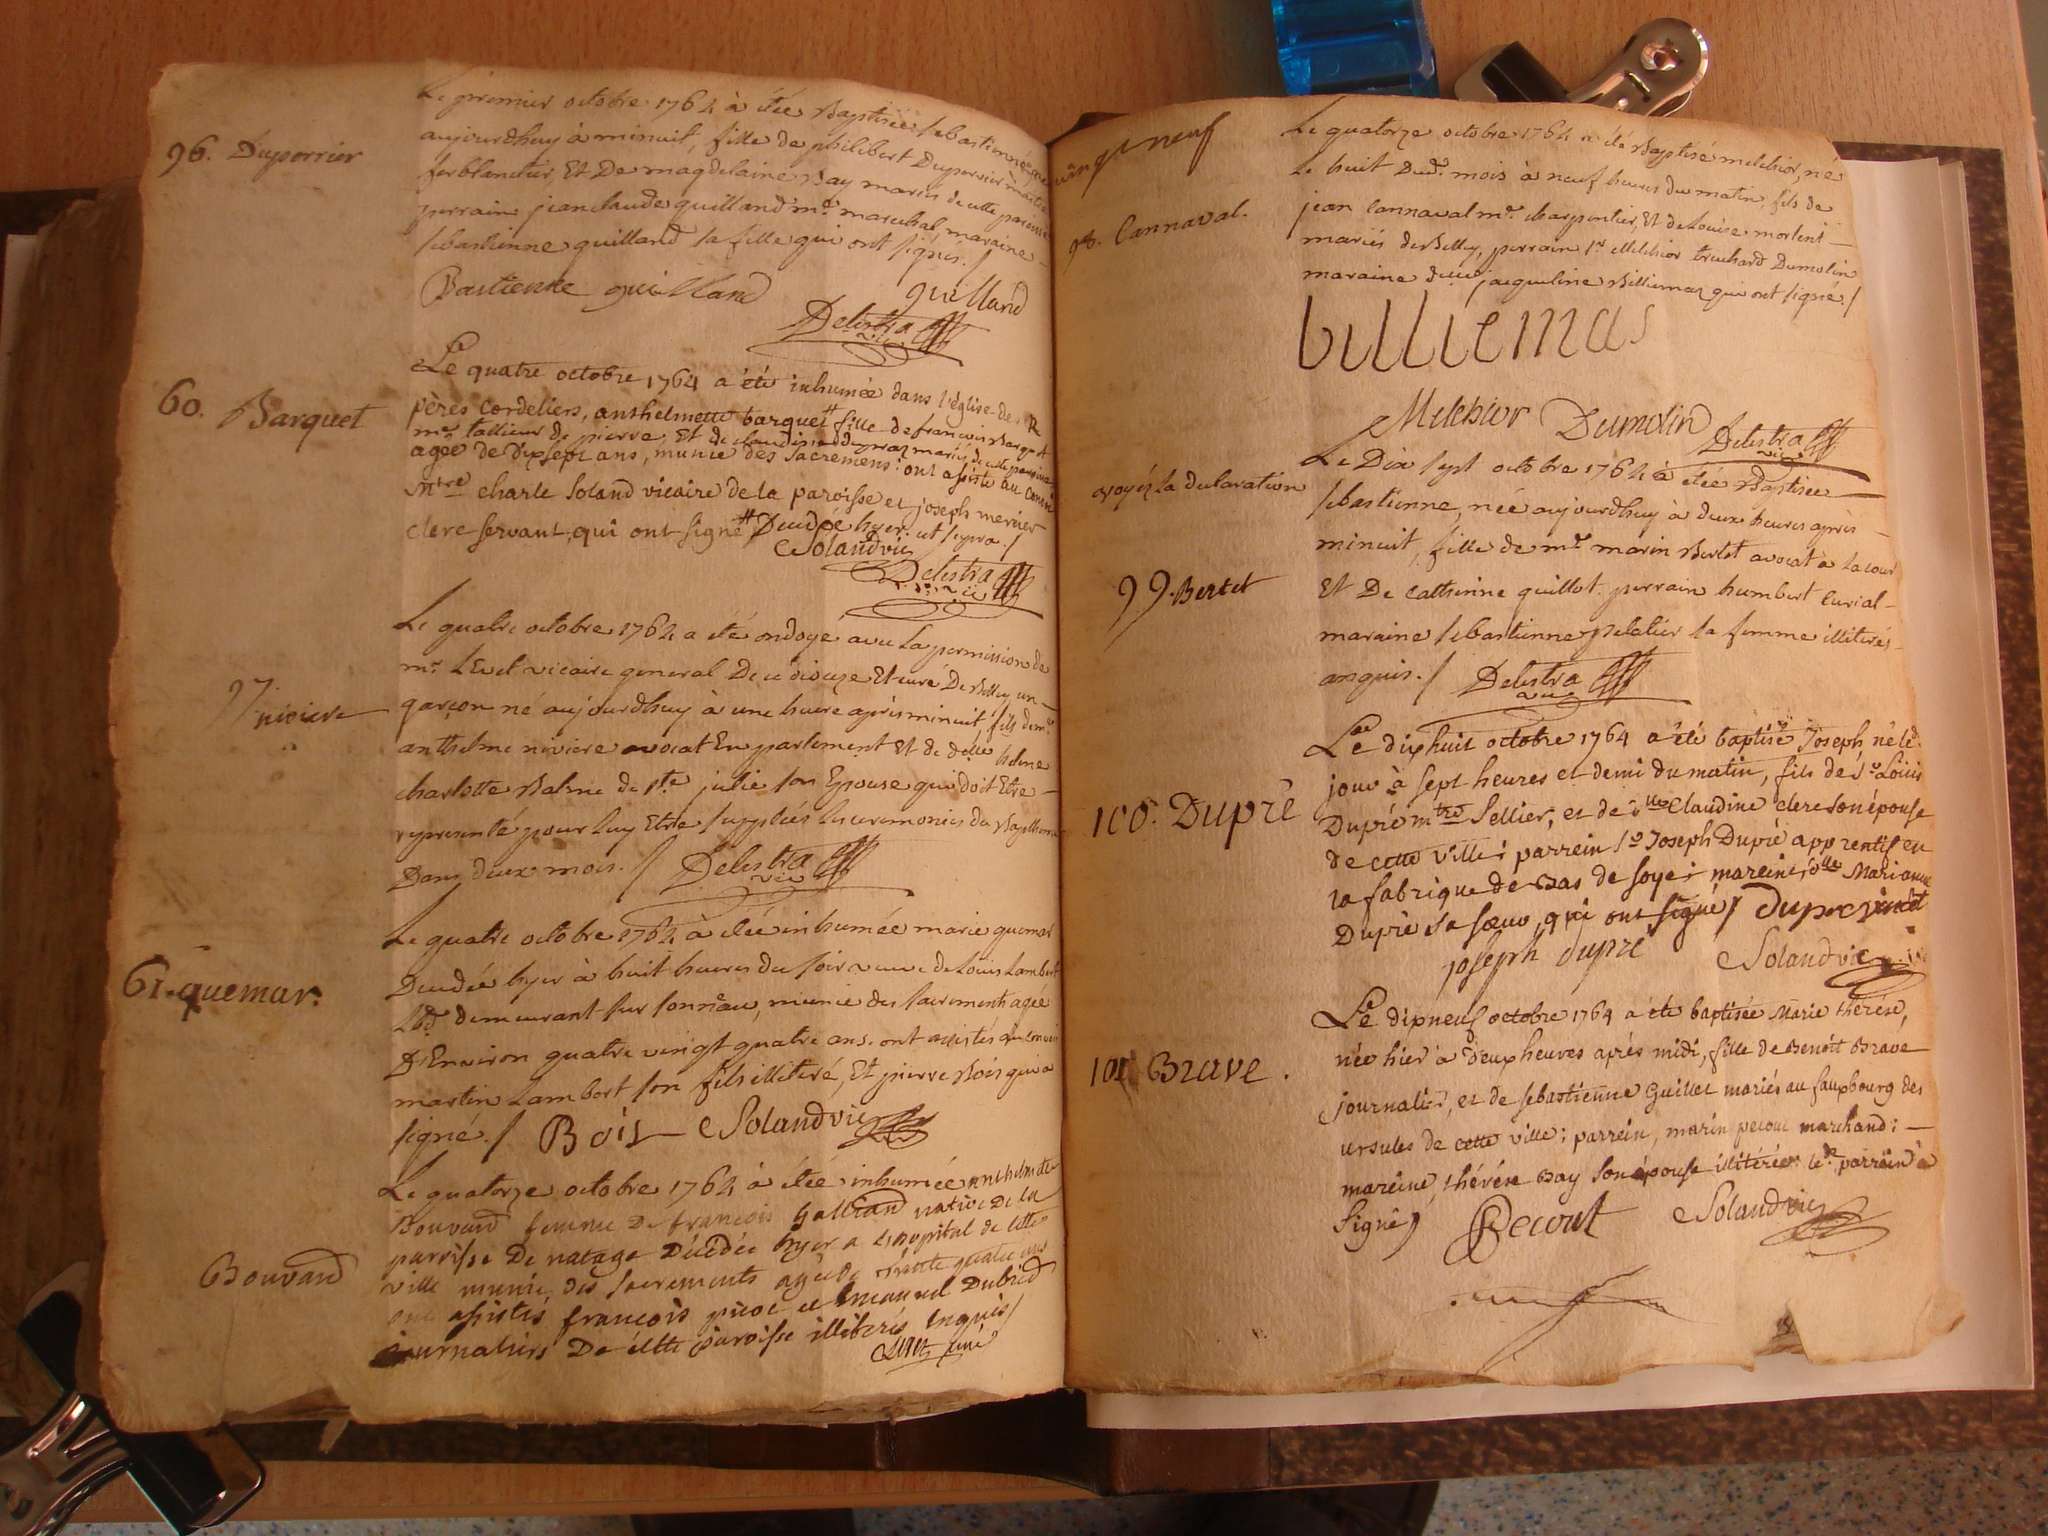 96. Duperrier
Le premier octobre 1764 à étée Baptisée sebastienne née
aujourdhuy à minuit, fille de philibert Duperrier maitre
ferblantier, Et De magdelaine Bay mariés de cette paroisse
perrain jean claude guilland me. marechal, maraine
sebastienne guilland sa fille qui ont signés. /
Bastienne guilland guilland
Delestra vic
60. Barquet
Le quatre octobre 1764 a été inhumée dans l'église des R
pères cordeliers, anthelmette barquet # fille de francois Barquet
me tallieur de pierre, Et de claudine mariés de cette paroisse
agée de dixsept ans, munie des sacremens: ont assisté au convoi
mtre charle Soland vicaire de la paroisse et joseph mercier
clerc servant, qui ont signé # Decedée hyer. ut supra. /
Soland vic
Delestra vic
97. niviere
Le quatre octobre 1764 a été ondoyé avec la permission de
mr. Levet vicaire general De ce dioceze Et curé De Belley, un
garçon né aujourdhuy à une heure après minuit fils de mr.
anthelme niviere avocat En parlement Et de delle helene
charlotte Balme de ste. julie son Epouse qui doit Etre
representé pour luy Etre supplées les ceremonies du Baptheme
Dans deux mois. / Delestra vic
61. quemar.
Le quatre octobre 1764 à étée inhumée marie quemar
Decedée hyer à huit heures du soir veuve de Louis Lambert
demeurant sur sonneau, munie des sacrements agée
D'Environ quatre vingt quatre ans. ont assistés au convoi
martin Lambert son fils illiteré, Et pierre Bois qui a
signé. / Bois Soland vic
Bouvard
Le quatorze octobre 1764 à étée inhumée anthelmette
Bouvard femme De françois Galliand native De la
parroisse De natage Décédée hyer a L'hopital de cette
ville munie des sacrements agée de trente quatre ans
ont assistés françois picoc et Emanuel Dubied
journaliers De cette paroisse illiterés Enquis /
Levet curé
neuf
98. Cannaval.
Le quatorze octobre 1764 a été Baptisé melchior, né
Le huit Dud. mois à neuf heures du matin, fils de
jean Cannaval me. charpentier, Et de Louise mortent
mariés de Belley, perrain sr. Melchior truchard Dumolin
maraine delle jacqueline Billiemaz qui ont signé. /
billiemas
Melchior Dumolin Delestra vic
voyez la declaration
99. Bertet
Le Dix sept octobre 1764 à étée Baptisée
sebastienne, née aujourdhuy à deux heures après
minuit, fille de me. marin Bertet avocat a la cour
Et De Catherine guillot. perrain humbert Curial
maraine sebastienne pelatier sa femme illiterés
anquis. / Delestra vic
100. Dupré
Le dixhuit octobre 1764 a été baptisé Joseph, né led.
jour à sept heures et demi du matin, fils de Sr. Loüis
Dupré mtre Sellier, et de dlle Claudine clerc son épouse
de cette ville: parrein Sr Joseph Dupré apprentif en
la fabrique de Bas de soye: mareine, dlle Marianne
Dupré sa sœur, qui ont signé / Dupre
joseph dupré Soland vic
101 Brave.
Le dixneuf octobre 1764 a été baptisée Marie thérése,
née hier a deux heures aprés midi, fille de Benoît Brave
journalier, et de sebastienne Guillet mariés au fauxbourg des
ursules de cette ville: parrein, marin pecout marchand:
mareine, thérése Bay son épouse illitérée: le parrein à
Signé / Pecout Soland vic